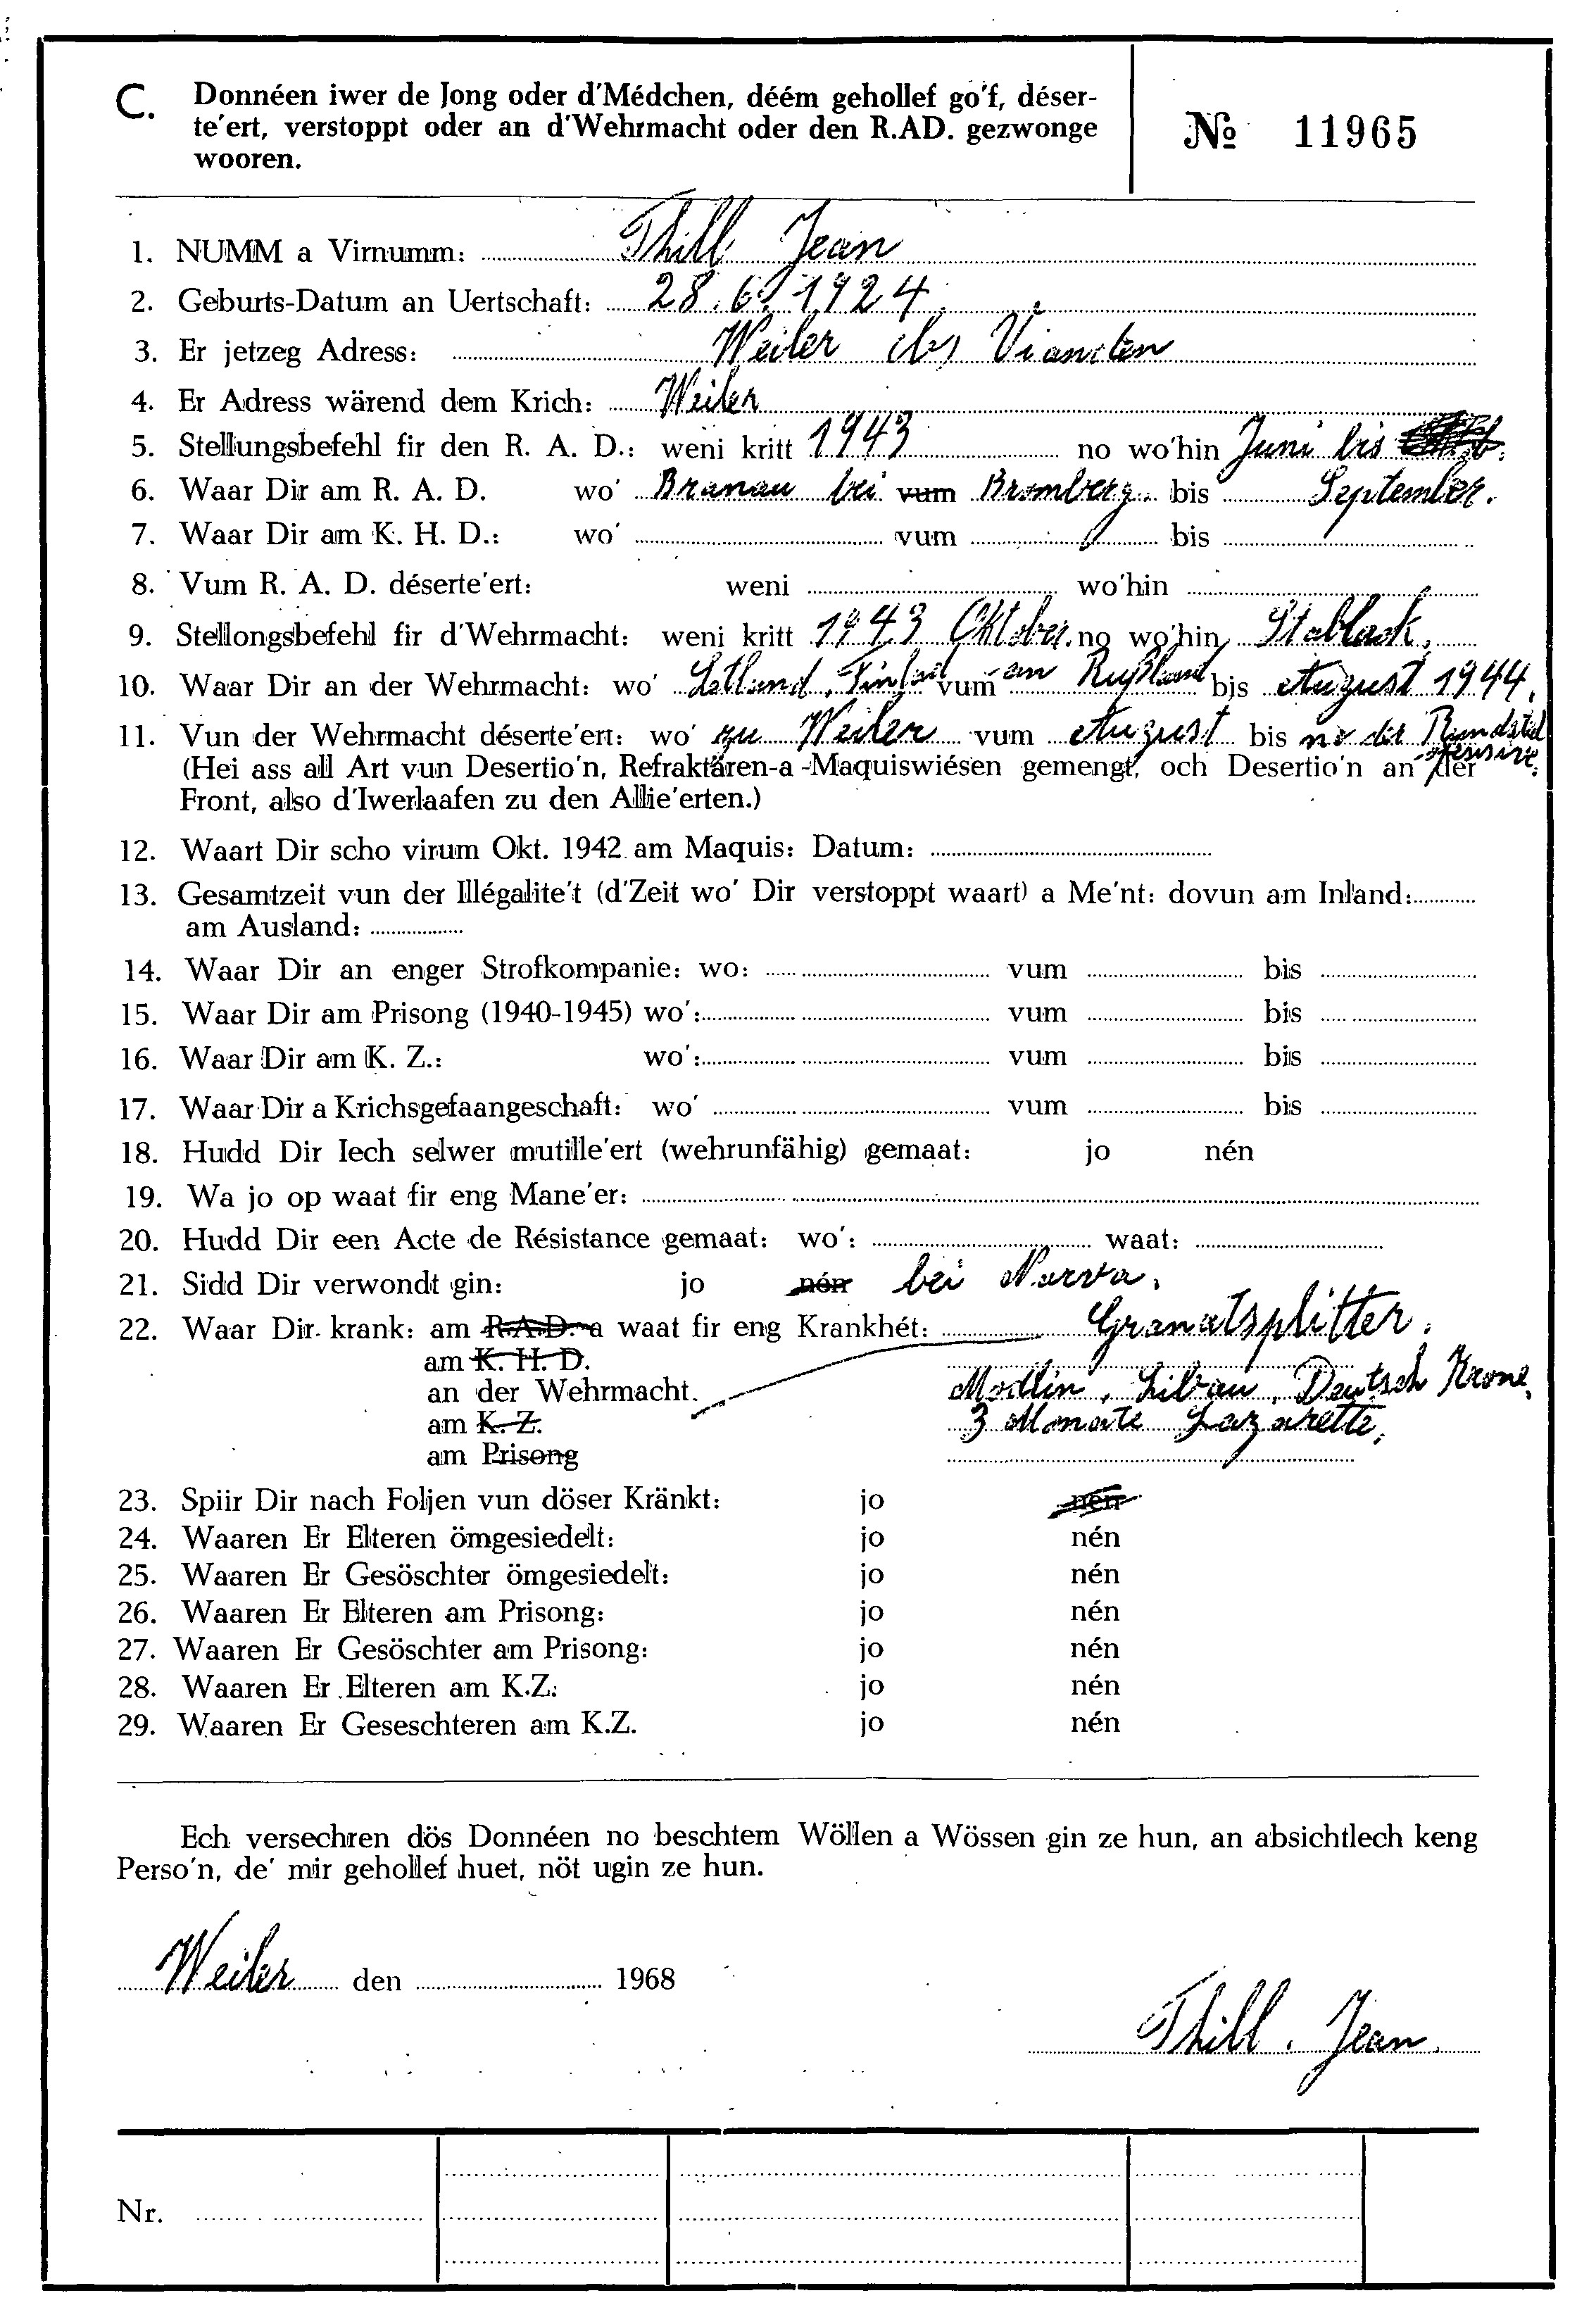 C. Donnéen iwer de Jong oder d'Médchen, déém gehollef go'f, déser-
te'ert, verstoppt oder an d'Wehrmacht oder den R.AD. gezwonge
wooren.
№ 11965
1. NUMM a Virnumm: Thill Jean
2. Geburts-Datum an Uertschaft: 28.6.1924.
3. Er jetzeg Adress: Weiler Vianden
4. Er Adress wärend dem Krich: Weiler
5. Stellungsbefehl fir den R. A. D.: weni kritt 1943 no wo'hin Juni bis
6. Waar Dir am R. A. D. wo' Branau bei vum Bromberg. bis September.
7. Waar Dir am K. H. D.: wo' vum bis
8. Vum R. A. D. déserte'ert: weni wo'hin
9. Stellongsbefehl fir d'Wehrmacht: weni kritt 1943 Oktober. no wo'hin Stablack,
10. Waar Dir an der Wehrmacht: wo' Letland, Finland vum an Rußland bis August 1944.
11. Vun der Wehrmacht déserte'ert: wo' zu Weiler vum August bis no der Rundsted
offensive.
(Hei ass all Art vun Desertio'n, Refraktären-a -Maquiswiésen gemengt, och Desertio'n an der
Front, also d'Iwerlaafen zu den Allie'erten.)
12. Waart Dir scho virum Okt. 1942 am Maquis: Datum:
13. Gesamtzeit vun der Illégalite't (d'Zeit wo' Dir verstoppt waart) a Me'nt: dovun am Inland:
am Ausland:
14. Waar Dir an enger Strofkompanie: wo: vum bis
15. Waar Dir am Prisong (1940-1945) wo': vum bis
16. Waar Dir am K. Z.: wo': vum bis
17. Waar Dir a Krichsgefaangeschaft: wo' vum bis
18. Hudd Dir Iech selwer mutille'ert (wehrunfähig) gemaat: jo nén
19. Wa jo op waat fir eng Mane'er:
20. Hudd Dir een Acte de Résistance gemaat: wo': waat:
21. Sidd Dir verwondt gin: jo nén bei Narva.
22. Waar Dir krank: am R.A.D. a waat fir eng Krankhét: Granatsplitter.
am K. H. D.
an der Wehrmacht. Modlin, Libau, Deutsch Krone,
am K. Z. 3 Monate Lazarette.
am Prisong
23. Spiir Dir nach Foljen vun döser Kränkt: jo nén
24. Waaren Er Elteren ömgesiedelt: jo nén
25. Waaren Er Gesöschter ömgesiedelt: jo nén
26. Waaren Er Elteren am Prisong: jo nén
27. Waaren Er Gesöschter am Prisong: jo nén
28. Waaren Er Elteren am K.Z: jo nén
29. Waaren Er Geseschteren am K.Z. jo nén
Ech versechren dös Donnéen no beschtem Wöllen a Wössen gin ze hun, an absichtlech keng
Perso'n, de' mir gehollef huet, nöt ugin ze hun.
Weiler den 1968
Thill Jean.
Nr.